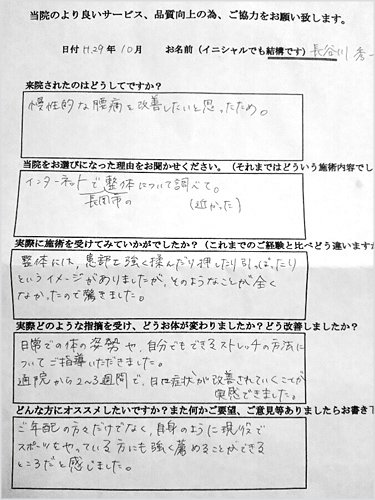 当院のより良いサービス、品質向上の為、ご協力をお願い致します。
日付 H.29年10月 お名前（イニシャルでも結構です）長谷川 秀一
来院されたのはどうしてですか？
慢性的な腰痛を改善したいと思ったため。
当院をお選びになった理由をお聞かせください。（それまではどういう施術内容でし
インターネットで整体について調べて。
長岡市の （近かった）
実際に施術を受けてみていかがでしたか？（これまでのご経験と比べどう違います
整体には、患部を強く揉んだり押したり引っぱったり
というイメージがありましたが、そのようなことが全く
なかったので驚きました。
実際どのような指摘を受け、どうお体が変わりましたか？どう改善しましたか？
日常での体の姿勢や、自分でもできるストレッチの方法に
ついてご指導いただきました。
通院から2〜3週間で、日に症状が改善されていくことが
実感できました。
どんな方にオススメしたいですか？また何かご要望、ご意見等ありましたらお書き下
ご年配の方々だけでなく、自身のように現役で
スポーツをやっている方にも強く薦めることができる
ところだと感じました。